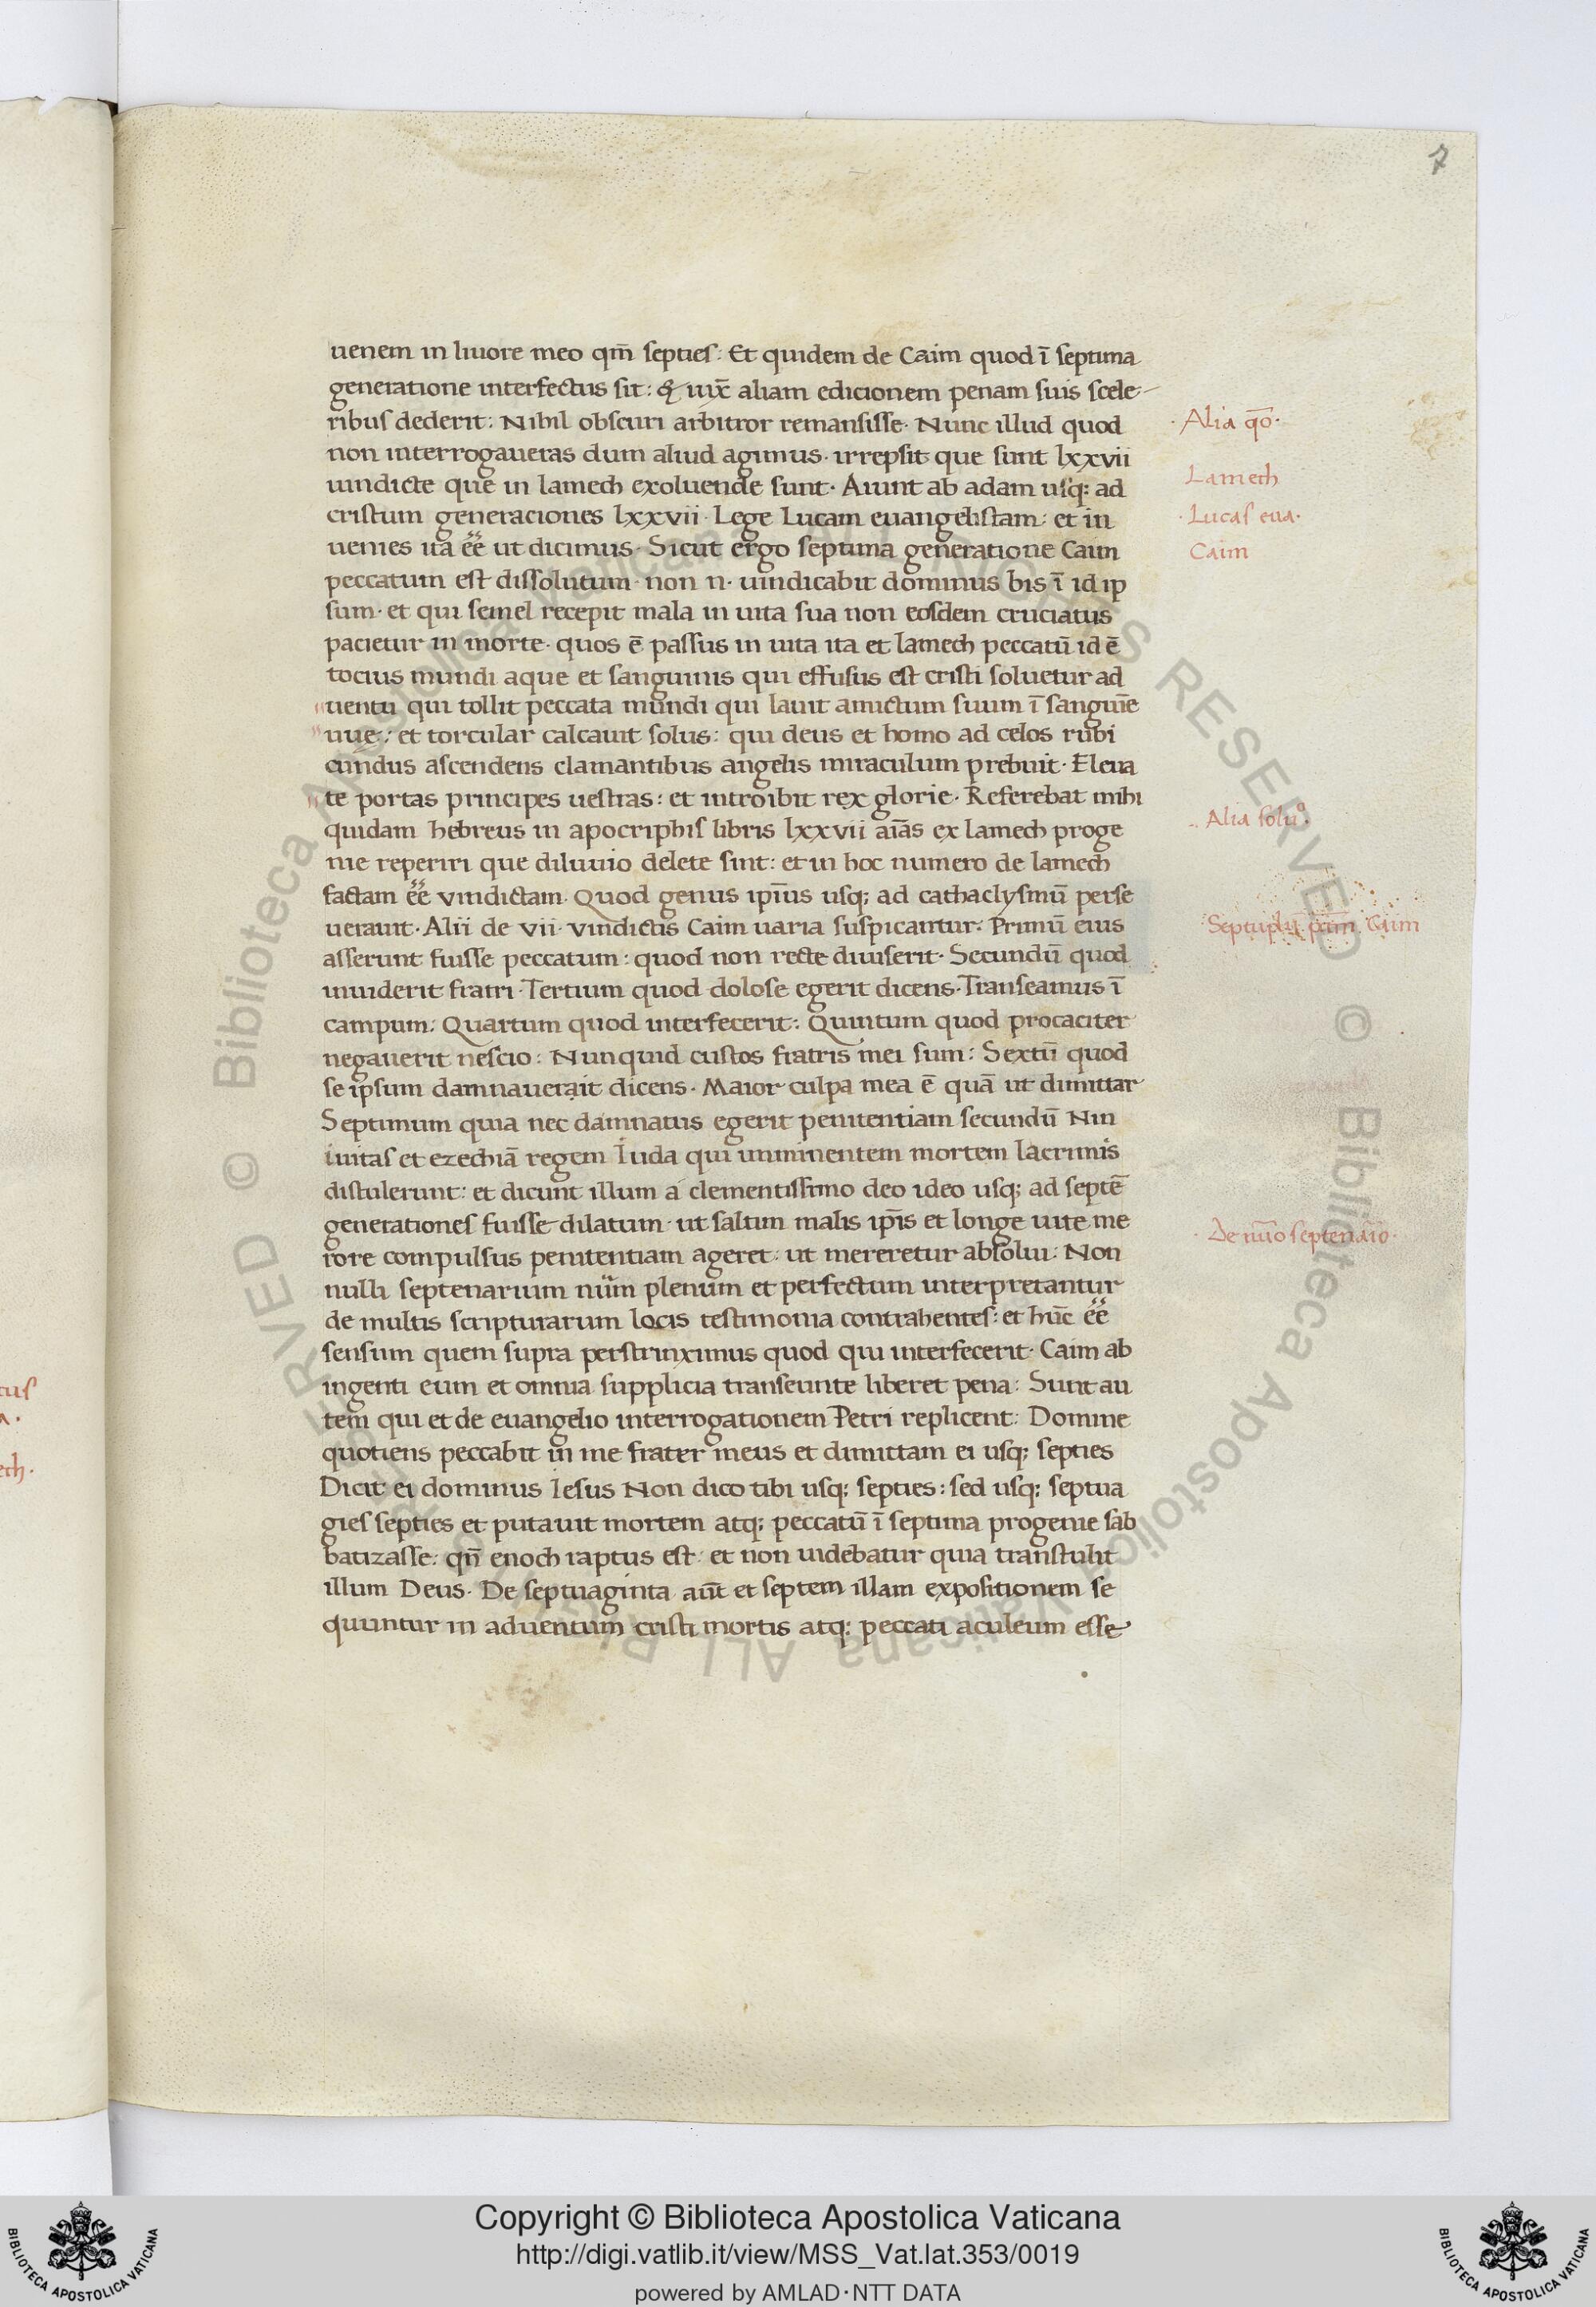 7
uenem in liuore meo qm̄ septies: Et quidem de Caim quod ī septima
generatione interfectus sit: & iux̄ aliam edicionem penam suis scele
ribus dederit: Nihil obscuri arbitror remansisse· Nunc illud quod
Alia qō·
non interrogaueras dum aliud agimus· irrepsit que sunt lxxvii
uindicte que in lamech exoluende sunt· Aiunt ab adam usq; ad
Lamech
cristum generaciones lxxvii· Lege Lucam euangelistam: et in
Lucas eua·
uenies ita ēē ut dicimus· Sicut ergo septima generatione Caim
Caim
peccatum est dissolutum· non n· uindicabit dominus bis ī id ip
sum· et qui semel recepit mala in uita sua non eosdem cruciatus
pacietur in morte· quos ē passus in uita ita et lamech peccatū id ē
tocius mundi aque et sanguinis qui effusus est cristi soluetur ad
uentu qui tollit peccata mundi qui lauit amictum suum ī sanguīe
uue: et torcular calcauit solus: qui deus et homo ad celos rubi
cundus ascendens clamantibus angelis miraculum prebuit· Eleua
te portas principes uestras: et introibit rex glorie· Referebat mihi
Alia solu°·
quidam hebreus in apocriphis libris lxxvii aīas ex lamech proge
nie reperiri que diluuio delete sint: et in hoc numero de lamech
factam ēē vindictam· Quod genus ipīus usq; ad cathaclysmū perse
uerauit· Alii de vii· vindictis Caim uaria suspicantur: Primū eius
Septuplū Caim
asserunt fuisse peccatum: quod non recte diuiserit· Secundū quod
inuiderit fratri· Tertium quod dolose egerit dicens· Transeamus ī
campum: Quartum quod interfecerit: Quintum quod procaciter
negauerit nescio: Nunquid custos fratris mei sum: Sextū quod
se ipsum damnauerait dicens· Maior culpa mea ē quā ut dimittar
Septimum quia nec damnatus egerit penitentiam secundū Nin
iuitas et ezechiā regem Iuda qui imminentem mortem lacrimis
distulerunt: et dicunt illum a clementissimo deo ideo usq; ad septē
generationes fuisse dilatum· ut saltim malis ip̄is et longe uite me
De nūo septenario·
rore compulsus penitentiam ageret: ut mereretur absolui: Non
nulli septenarium nūm plenum et perfectum interpretantur
de multis scripturarum locis testimonia contrahentes: et hūc ēē
sensum quem supra perstrinximus quod qui interfecerit· Caim ab
ingenti eum et omnia supplicia transeunte liberet pena: Sunt au
tem qui et de euangelio interrogationem Petri replicent: Domine
quotiens peccabit in me frater meus et dimittam ei usq; septies
Dicit ei dominus Iesus Non dico tibi usq; septies: sed usq; septua
gies septies et putauit mortem atq; peccatū ī septima progenie sab
batizasse: qn̄ enoch raptus est: et non uidebatur quia transtulit
illum Deus· De septuaginta aūt et septem illam expositionem se
quuntur in aduentum cristi mortis atq; peccati aculeum esse
Copyright © Biblioteca Apostolica Vaticana
http://digi.vatlib.it/view/MSS_Vat.lat.353/0019
powered by AMLAD·NTT DATA